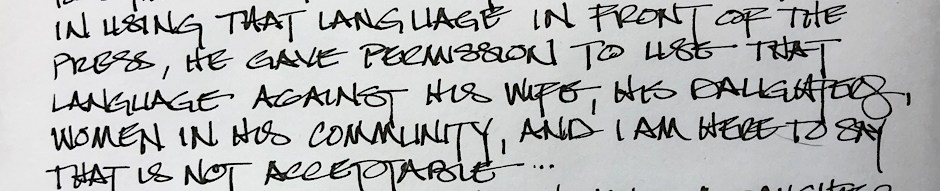 IN USING THAT LANGUAGE IN FRONT OF THE
PRESS, HE GAVE PERMISSION TO USE THAT
LANGUAGE AGAINST HIS WIFE, HIS DAUGHTERS,
WOMEN IN HIS COMMUNITY, AND I AM HERE TO SAY
THAT IS NOT ACCEPTABLE...